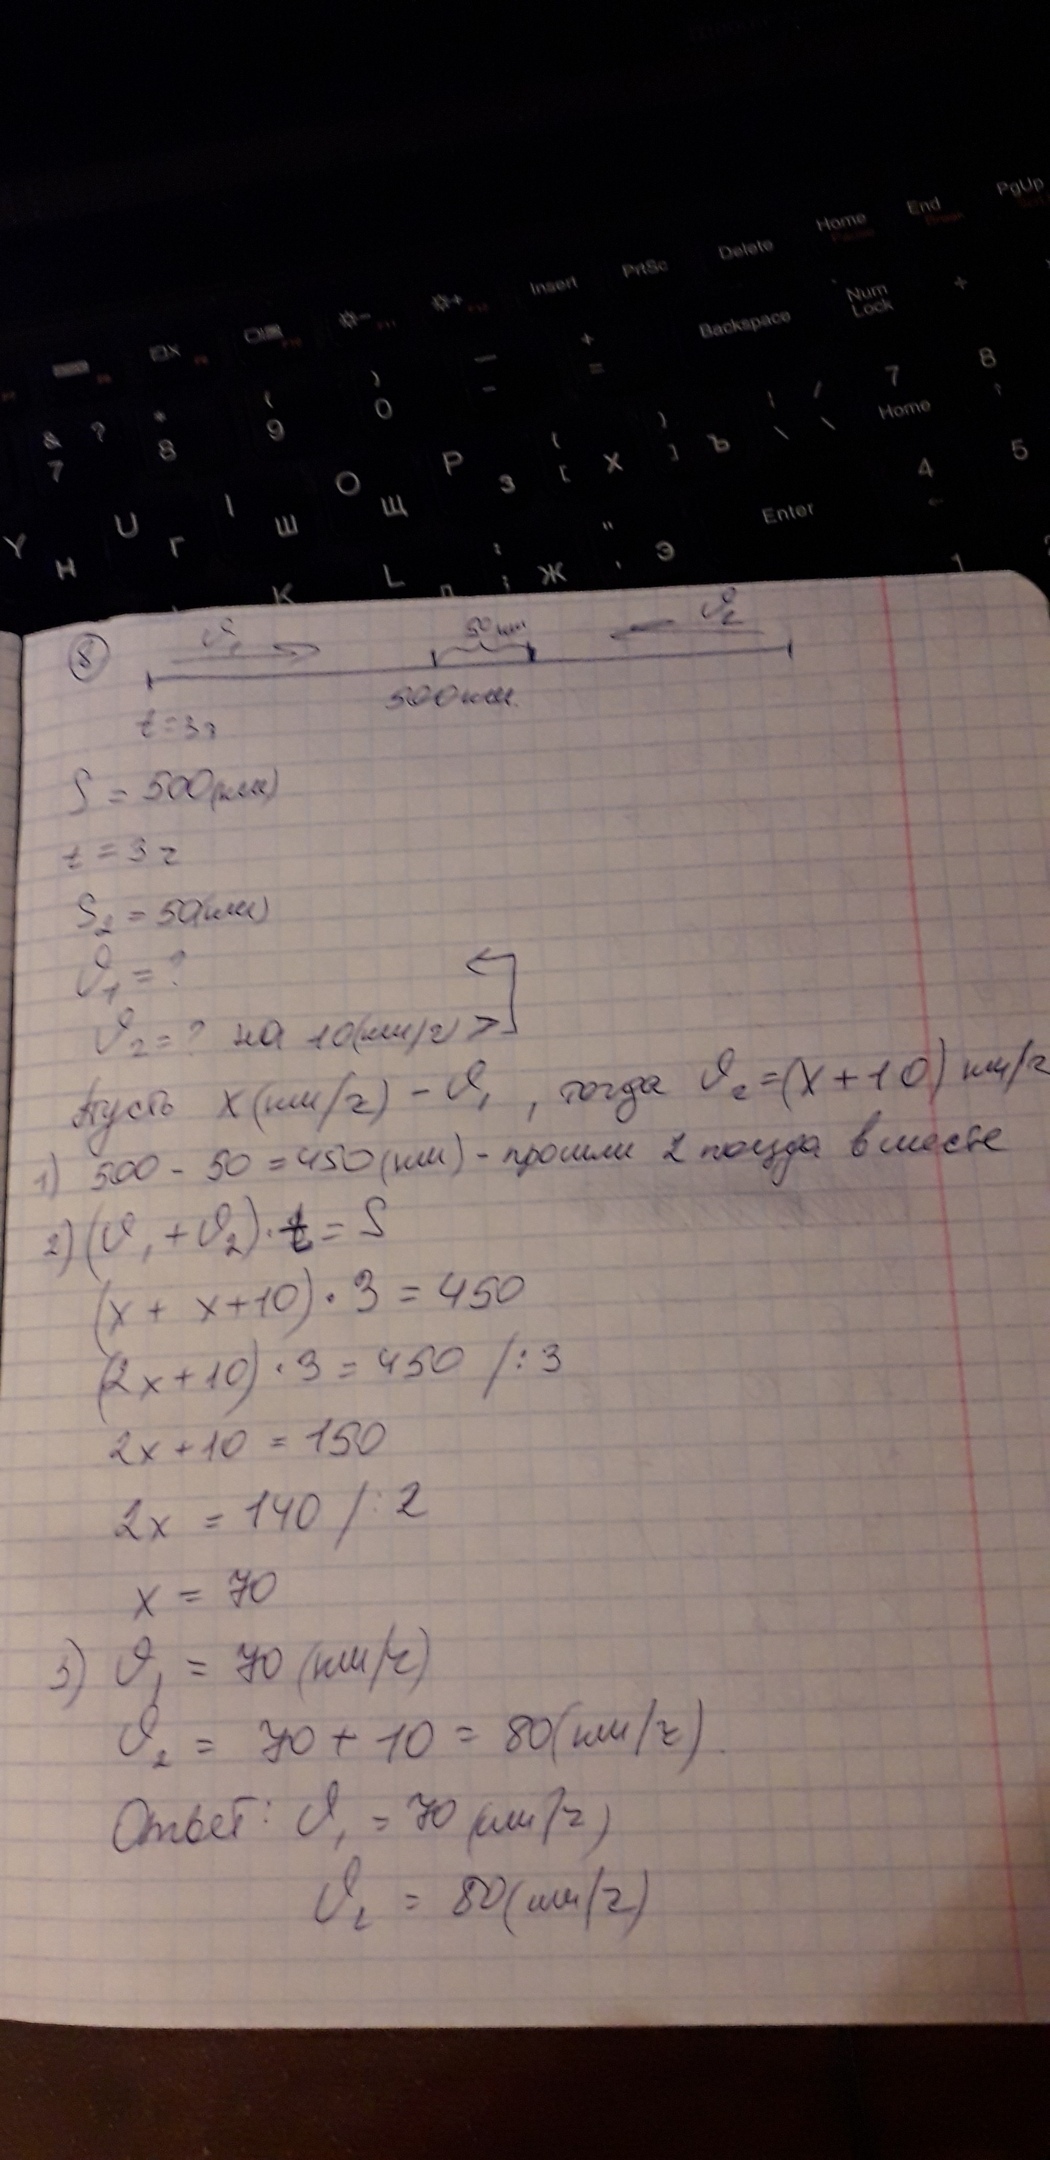 PgUp
End
Home
Delete
PrtSc
Insert
Num
Lock
Backspace
+
=
8
7
Home
)
0
(
9
*
8
& ?
7
5
4
Ъ
Х
[
З
Р
Щ
О
Ш
I
Г
U
Н
Y
Enter
"
Э
Ж
L
K
1
8
ϑ₁
50 км
ϑ₂
500 км.
t = 3 ч
S = 500 (км)
t = 3 ч
S₂ = 50 (км)
ϑ₁ = ?
ϑ₂ = ? на 10 (км/ч) >
Пусть x (км/ч) - ϑ₁, тогда ϑ₂ = (x + 10) км/ч
1) 500 - 50 = 450 (км) - прошли 2 поезда вместе
2) (ϑ₁ + ϑ₂) · t = S
(x + x + 10) · 3 = 450
(2x + 10) · 3 = 450 /: 3
2x + 10 = 150
2x = 140 /: 2
x = 70
3) ϑ₁ = 70 (км/ч)
ϑ₂ = 70 + 10 = 80 (км/ч).
Ответ: ϑ₁ = 70 (км/ч)
ϑ₂ = 80 (км/ч)